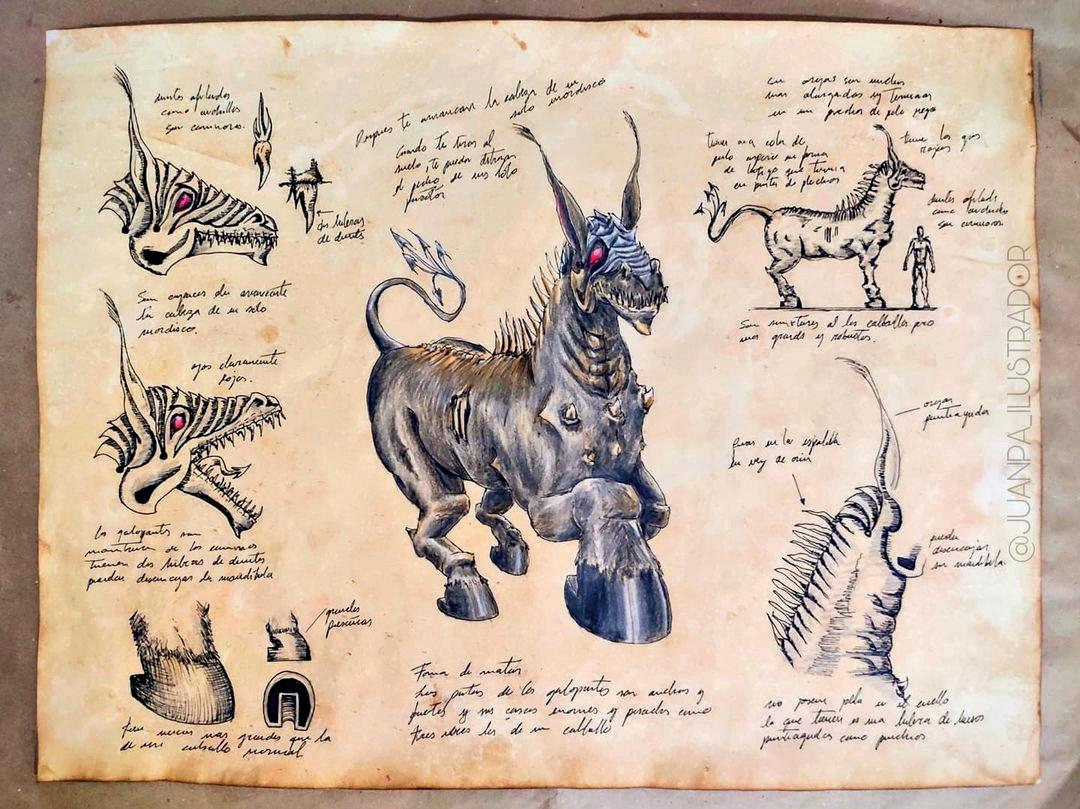 dientes afilados
como cuchillos
son carnivoros.
dos hileras
de dientes
Son capaces de arrancarte
la cabeza de un solo
mordisco.
ojos claramente
rojos.
los galopantes son
monturas de los
tienen dos hileras de dientes
pueden desencajar la mandibula
grandes
pesuñas
tres veces mas grandes que la
de un caballo normal
Despues te arrancara la cabeza de un
solo mordisco
Cuando te tiras al
suelo, te pueden
el pecho de un solo
pisoton
Forma de matar
Las patas de los galopantes son anchas y
fuertes y sus cascos enormes y pesados como
tres veces los de un caballo
sus orejas son
mas alargadas y terminan
en un mechon de pelo negro
tiene una cola de
pelo en forma
de latigo que termina
en punta de flechas
tiene los ojos
rojos
dientes afilados
como cuchillos
son carnivoros
Son similares a los caballos pero
mas grandes y robustos.
orejas
puntiagudas
puas en la espalda
en vez de crin
puede
desencajar
su mandibula
no posee pelo en el cuello
lo que tiene es una hilera de huesos
puntiagudos como pinchos
@JUANPA.ILUSTRADOR